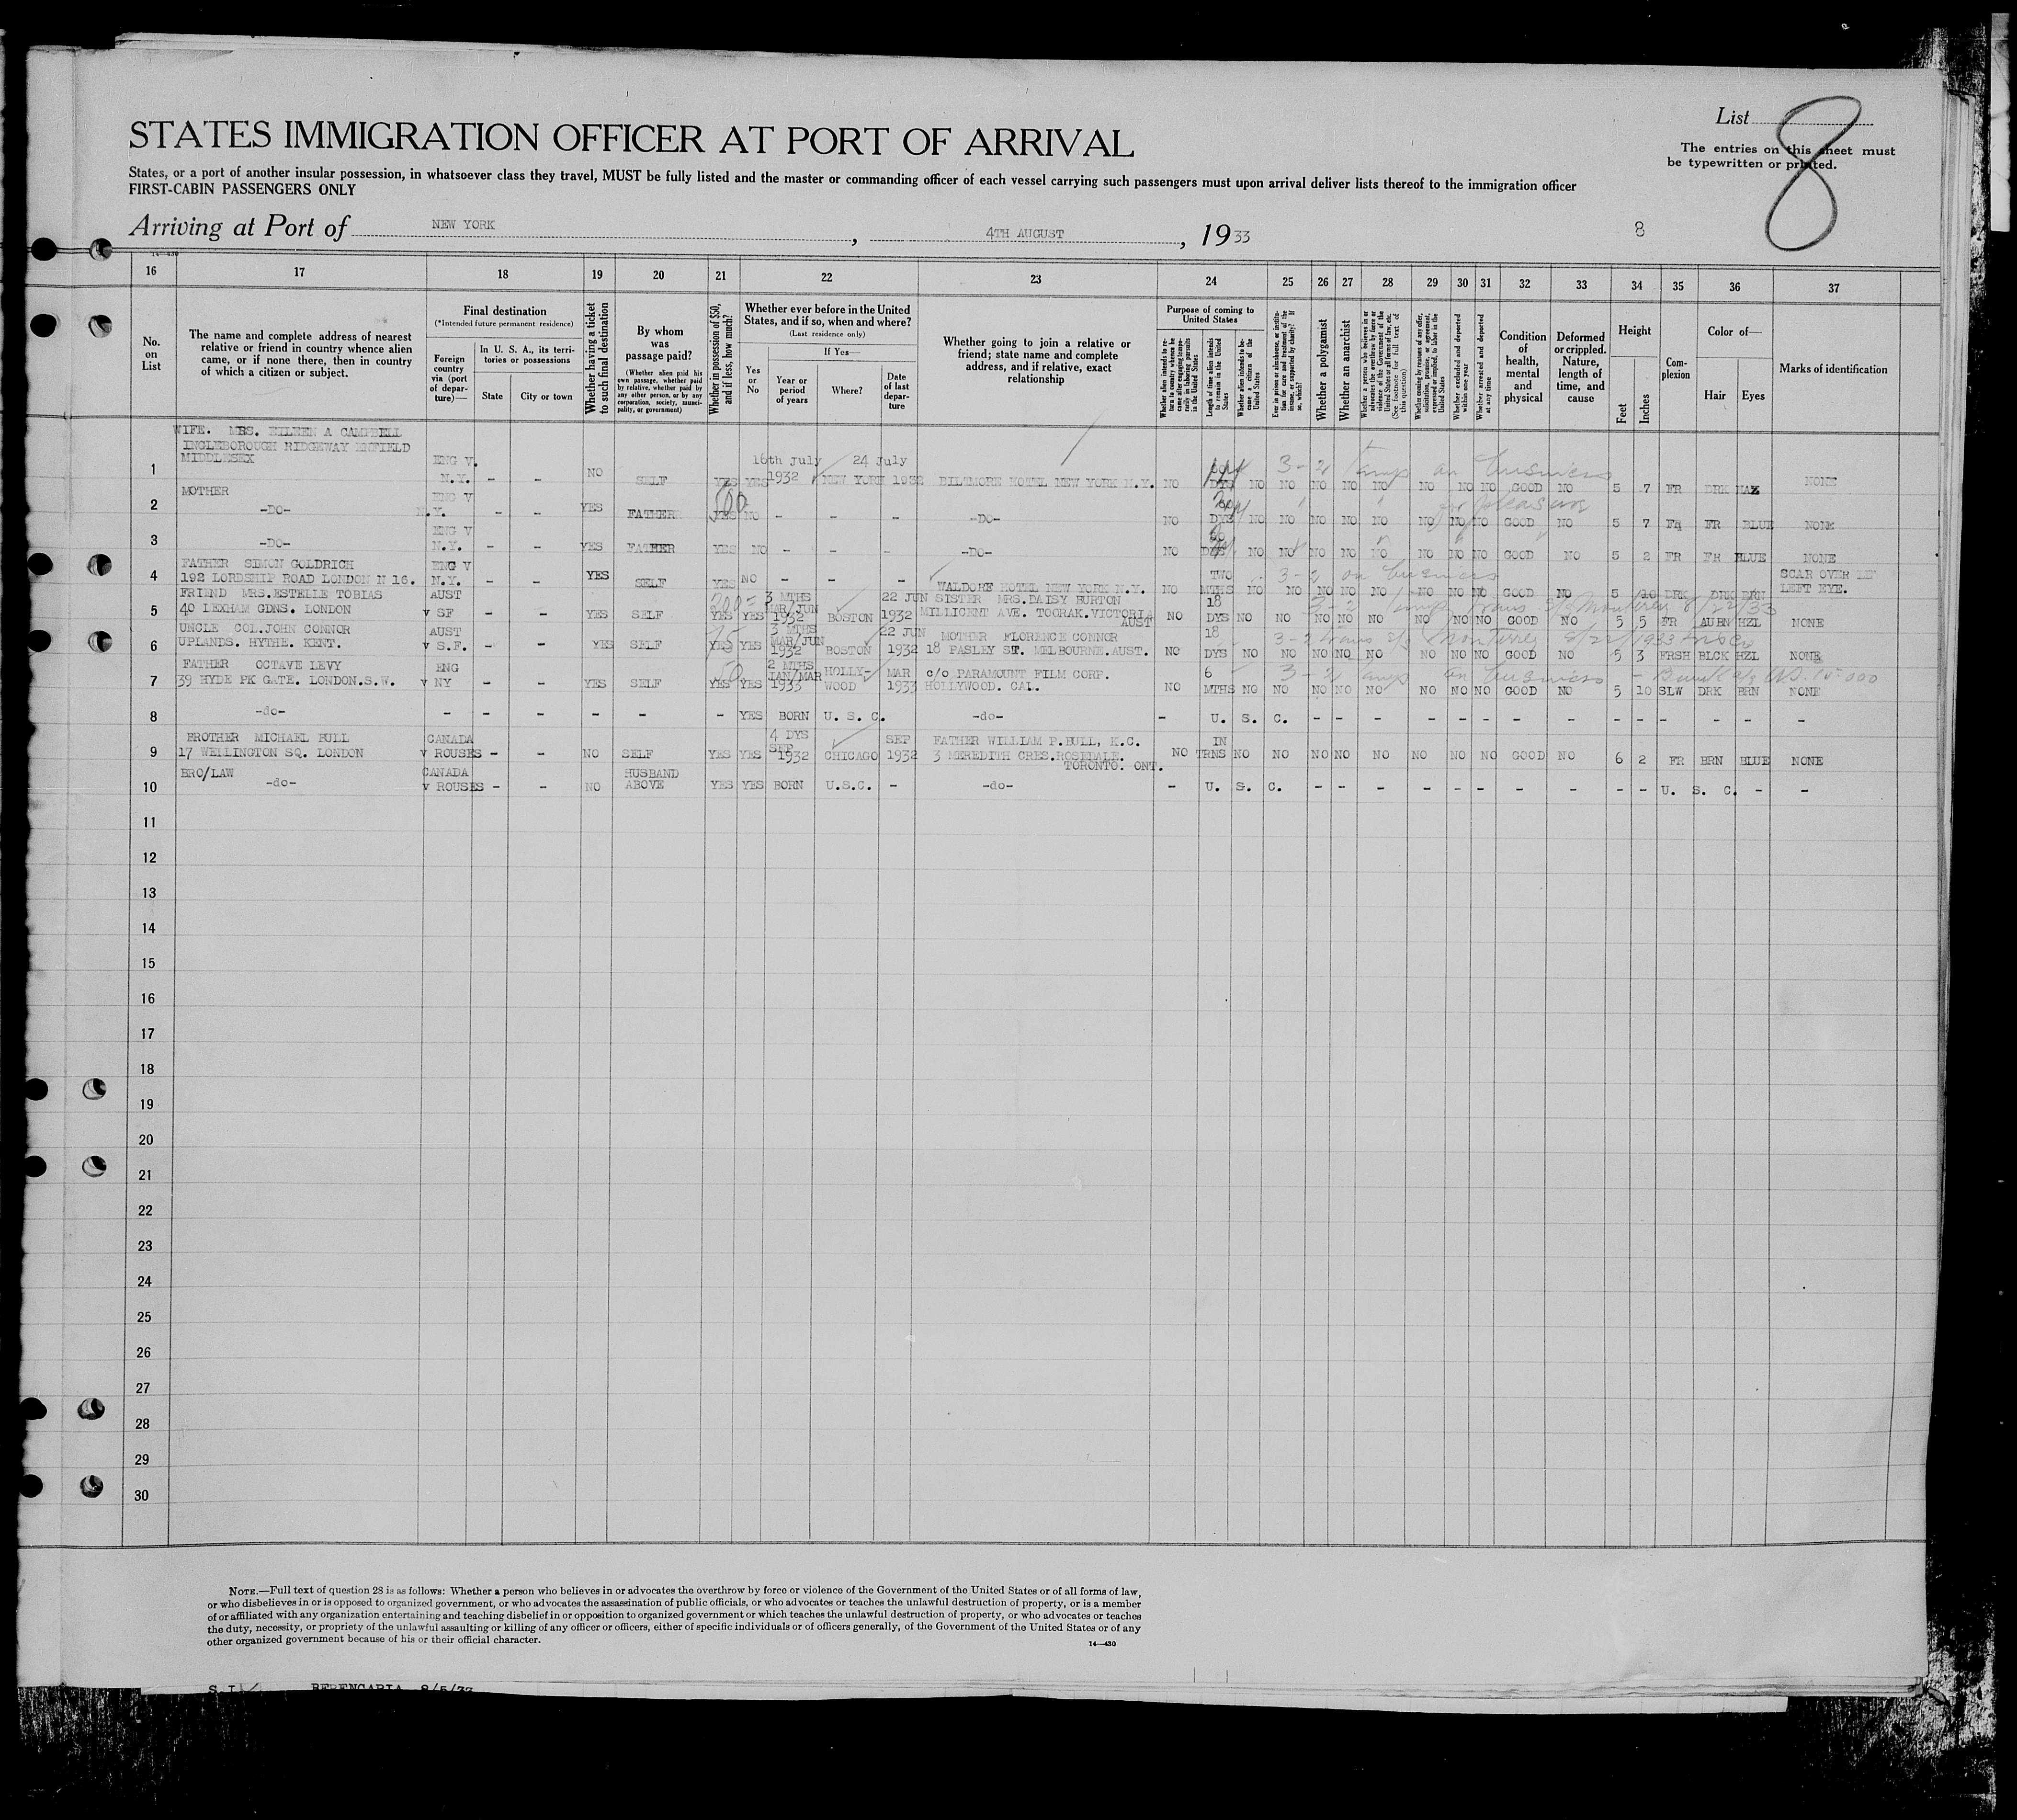 STATES IMMIGRATION OFFICER AT PORT OF ARRIVAL
List
8
The entries on this sheet must
be typewritten or printed.
States, or a port of another insular possession, in whatsoever class they travel, MUST be fully listed and the master or commanding officer of each vessel carrying such passengers must upon arrival deliver lists thereof to the immigration officer
FIRST-CABIN PASSENGERS ONLY
Arriving at Port of NEW YORK, 4TH AUGUST, 1933
8
16 17 18 19 20 21 22 23 24 25 26 27 28 29 30 31 32 33 34 35 36 37
No. on List
The name and complete address of nearest relative or friend in country whence alien came, or if none there, then in country of which a citizen or subject.
Final destination
(*Intended future permanent residence)
Foreign country via (port of departure)—
In U. S. A., its territories or possessions
State
City or town
Whether having a ticket to such final destination
By whom was passage paid?
(Whether alien paid his own passage, whether paid by relative, whether paid by any other person, or by any corporation, society, municipality, or government)
Whether in possession of $50, and if less, how much?
Whether ever before in the United States, and if so, when and where?
(Last residence only)
Yes or No
If Yes—
Year or period of years
Where?
Date of last departure
Whether going to join a relative or friend; state name and complete address, and if relative, exact relationship
Purpose of coming to United States
Whether alien intends to return to country whence he came after engaging temporarily in laboring pursuits in the United States
Length of time alien intends to remain in the United States
Whether alien intends to become a citizen of the United States
Ever in prison or almshouse, or institution for care and treatment of the insane, or supported by charity? If so, which?
Whether a polygamist
Whether an anarchist
Whether a person who believes in or advocates the overthrow by force or violence of the Government of the United States or all forms of law, etc. (See footnote for full text of this question)
Whether coming by reason of any offer, solicitation, promise, or agreement, expressed or implied, to labor in the United States
Whether excluded and deported within one year
Whether arrested and deported at any time
Condition of health, mental and physical
Deformed or crippled. Nature, length of time, and cause
Height
Feet
Inches
Complexion
Color of—
Hair
Eyes
Marks of identification
WIFE. MRS. EILEEN A CAMPBELL
INGLEBOROUGH RIDGEWAY ENFIELD
MIDDLESEX ENG V. 16th July 24 July
1 N.Y. - - NO SELF YES YES 1932 NEW YORK 1932 BILTMORE HOTEL NEW YORK N.Y. NO DYS NO NO NO NO NO NO NO NO GOOD NO 5 7 FR DRK HAZ NONE
3-2 temp on business
MOTHER ENG V
2 -DO- N.Y. - - YES FATHER YES NO - - - -DO- NO DYS NO NO NO NO NO NO NO NO GOOD NO 5 7 FR FR BLUE NONE
for pleasure
ENG V
3 -DO- N.Y. - - YES FATHER YES NO - - - -DO- NO DYS NO NO NO NO NO NO NO NO GOOD NO 5 2 FR FR BLUE NONE
FATHER SIMON GOLDRICH ENG V TWO 3-2 on business SCAR OVER
4 192 LORDSHIP ROAD LONDON N 16. N.Y. - - YES SELF YES NO - - - WALDORF HOTEL NEW YORK N.Y. NO MTHS NO NO NO NO NO NO NO NO GOOD NO 5 10 DRK DRK BRN LEFT EYE.
FRIEND MRS.ESTELLE TOBIAS AUST 3 MTHS MAR/JUN 22 JUN SISTER MRS.DAISY BURTON 18
5 40 LEXHAM GDNS. LONDON v SF - - YES SELF YES YES 1932 BOSTON 1932 MILLICENT AVE. TOORAK.VICTORIA AUST NO DYS NO NO NO NO NO NO NO NO GOOD NO 5 5 FR AUBN HZL NONE
3-2 temp Trans S/S Monterey 8/22/33
UNCLE COL.JOHN CONNOR AUST 3 MTHS MAR/JUN 22 JUN MOTHER FLORENCE CONNOR 18
6 UPLANDS. HYTHE. KENT. v S.F. - - YES SELF YES YES 1932 BOSTON 1932 18 PASLEY ST. MELBOURNE.AUST. NO DYS NO NO NO NO NO NO NO NO GOOD NO 5 3 FRSH BLCK HZL NONE
3-2 trans S/S Monterey 8/22/1933
FATHER OCTAVE LEVY ENG 2 MTHS JAN/MAR HOLLY- MAR c/o PARAMOUNT FILM CORP. 6
7 39 HYDE PK GATE. LONDON.S.W. v NY - - YES SELF YES YES 1933 WOOD 1933 HOLLYWOOD. CAL. NO MTHS NO NO NO NO NO NO NO NO GOOD NO 5 10 SLW DRK BRN NONE
3-2 temp on business
8 -do- - - - - - - YES BORN U. S. C. -do- - U. S. C. - - - - - - - - - - - - - -
BROTHER MICHAEL BULL CANADA 4 DYS SEP SEP FATHER WILLIAM P.BULL, K.C. IN
9 17 WELLINGTON SQ. LONDON v ROUSES - - NO SELF YES YES 1932 CHICAGO 1932 3 MEREDITH CRES.ROSEDALE. TORONTO. ONT. NO TRNS NO NO NO NO NO NO NO NO GOOD NO 6 2 FR BRN BLUE NONE
BRO/LAW CANADA HUSBAND
10 -do- v ROUSES - - NO ABOVE YES YES BORN U.S.C. - -do- - U. S. C. - - - - - - - - - - U. S. C. - -
11
12
13
14
15
16
17
18
19
20
21
22
23
24
25
26
27
28
29
30
NOTE.—Full text of question 28 is as follows: Whether a person who believes in or advocates the overthrow by force or violence of the Government of the United States or of all forms of law,
or who disbelieves in or is opposed to organized government, or who advocates the assassination of public officials, or who advocates or teaches the unlawful destruction of property, or is a member
of or affiliated with any organization entertaining and teaching disbelief in or opposition to organized government or which teaches the unlawful destruction of property, or who advocates or teaches
the duty, necessity, or propriety of the unlawful assaulting or killing of any officer or officers, either of specific individuals or of officers generally, of the Government of the United States or of any
other organized government because of his or their official character.
14—430
S.I. BERENGARIA 8/5/33